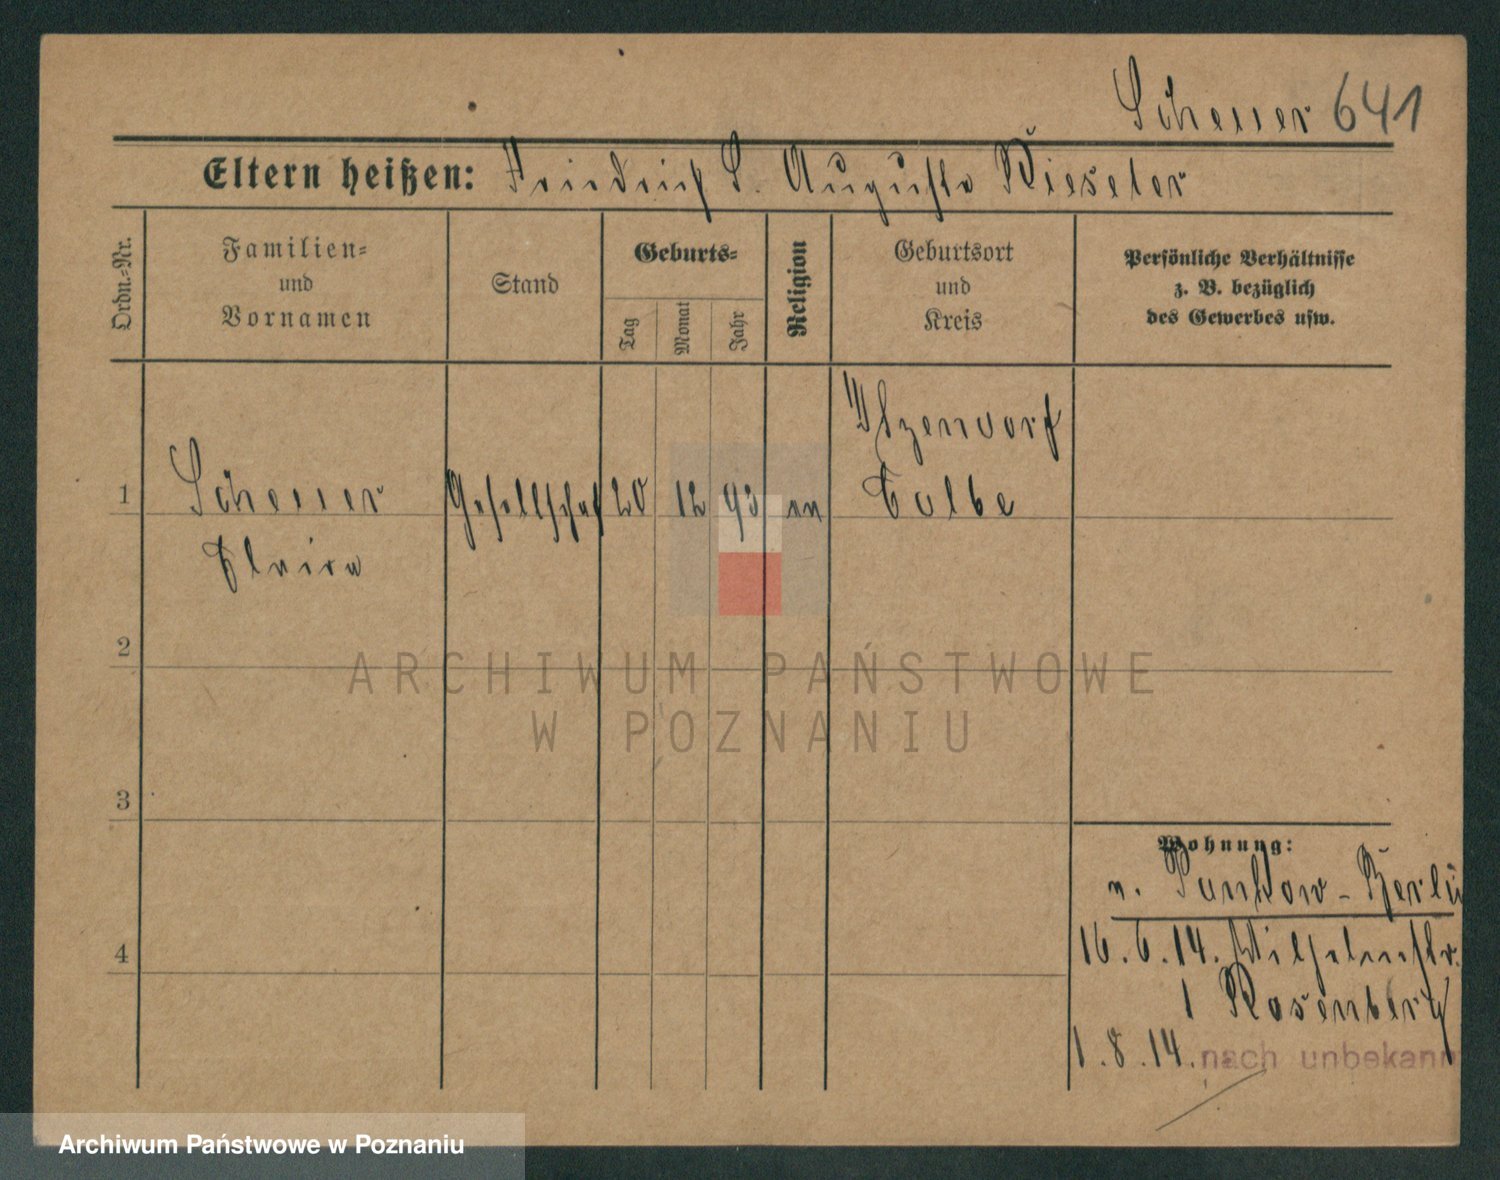 Scheuer 641
Eltern heißen: Friedrich S. Auguste Kieseler
Ordn.-Nr.
Familien-
und
Vornamen
Stand
Geburts-
Tag
Monat
Jahr
Religion
Geburtsort
und
Kreis
Persönliche Verhältnisse
z. B. bezüglich
des Gewerbes usw.
1
Scheuer
Elvira
20
12
93
ev
Calbe
2
3
4
Wohnung:
v. Pankow - Berlin
16.6.14. Wilhelmstr.
1 Rosenberg
1.8.14. nach unbekann
ARCHIWUM PAŃSTWOWE
W POZNANIU
Archiwum Państwowe w Poznaniu